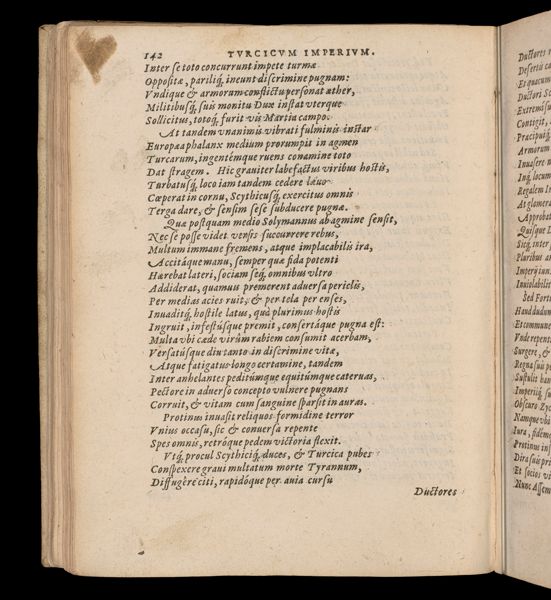 142 TVRCICVM IMPERIVM.
Inter se toto concurrunt impete turmæ
Oppositæ, pariliq́, ineunt discrimine pugnam:
Vndique & armorum conflictu personat æther,
Militibusq́, suis monitu Dux instat vterque
Sollicitus, totoq́, furit vis Martia campo.
At tandem vnanimis vibrati fulminis instar
Europæa phalanx medium prorumpit in agmen
Turcarum, ingentémque ruens conamine toto
Dat stragem. Hic grauiter labefactus viribus hostis,
Turbatusq́, loco iam tandem cedere læuo
Cœperat in cornu, Scythicusq́, exercitus omnis
Terga dare, & sensim sese subducere pugnæ.
Quæ postquam medio Solymannus ab agmine sensit,
Nec se posse videt versis succurrere rebus,
Multum immane fremens, atque implacabilis ira,
Accitáque manu, semper quæ fida potenti
Hærebat lateri, sociam seq́, omnibus vltro
Addiderat, quamuis premerent aduersa periclis,
Per medias acies ruit, & per tela per enses,
Inuaditq́, hostile latus, quà plurimus hostis
Ingruit, infestúsque premit, consertáque pugna est:
Multa vbi cæde virûm rabiem consumit acerbam,
Versatúsque diu tanto in discrimine vitæ,
Atque fatigatus longo certamine, tandem
Inter anhelantes peditúmque equitúmque cateruas,
Pectore in aduerso concepto vulnere pugnans
Corruit, & vitam cum sanguine sparsit in auras.
Protinus inuasit reliquos formidine terror
Vnius occasu, sic & conuersa repente
Spes omnis, retróque pedem victoria flexit.
Vtq́, procul Scythiciq́, duces, & Turcica pubes
Conspexere graui multatum morte Tyrannum,
Diffugêre citi, rapidóque per auia cursu
Ductores
Ductores
Desertis
Et quacum
Ductori
Contigit,
Præcipuiq́
Armorum
Inuasere
Inq́, locum
Regalem
At glomera
Approbat
Quisque
Sicq́, inter
Pluribus
Imperÿ
Inuiolabilit
Sed Fort
Haud dudum
Et commune
Vnde repent
Surgere, &
Regna sui
Sustulit
Imperiiq́,
Obscuro
Namque vbi
Iura, fidem
Protinus in
Dira suis
Et socios
Nunc